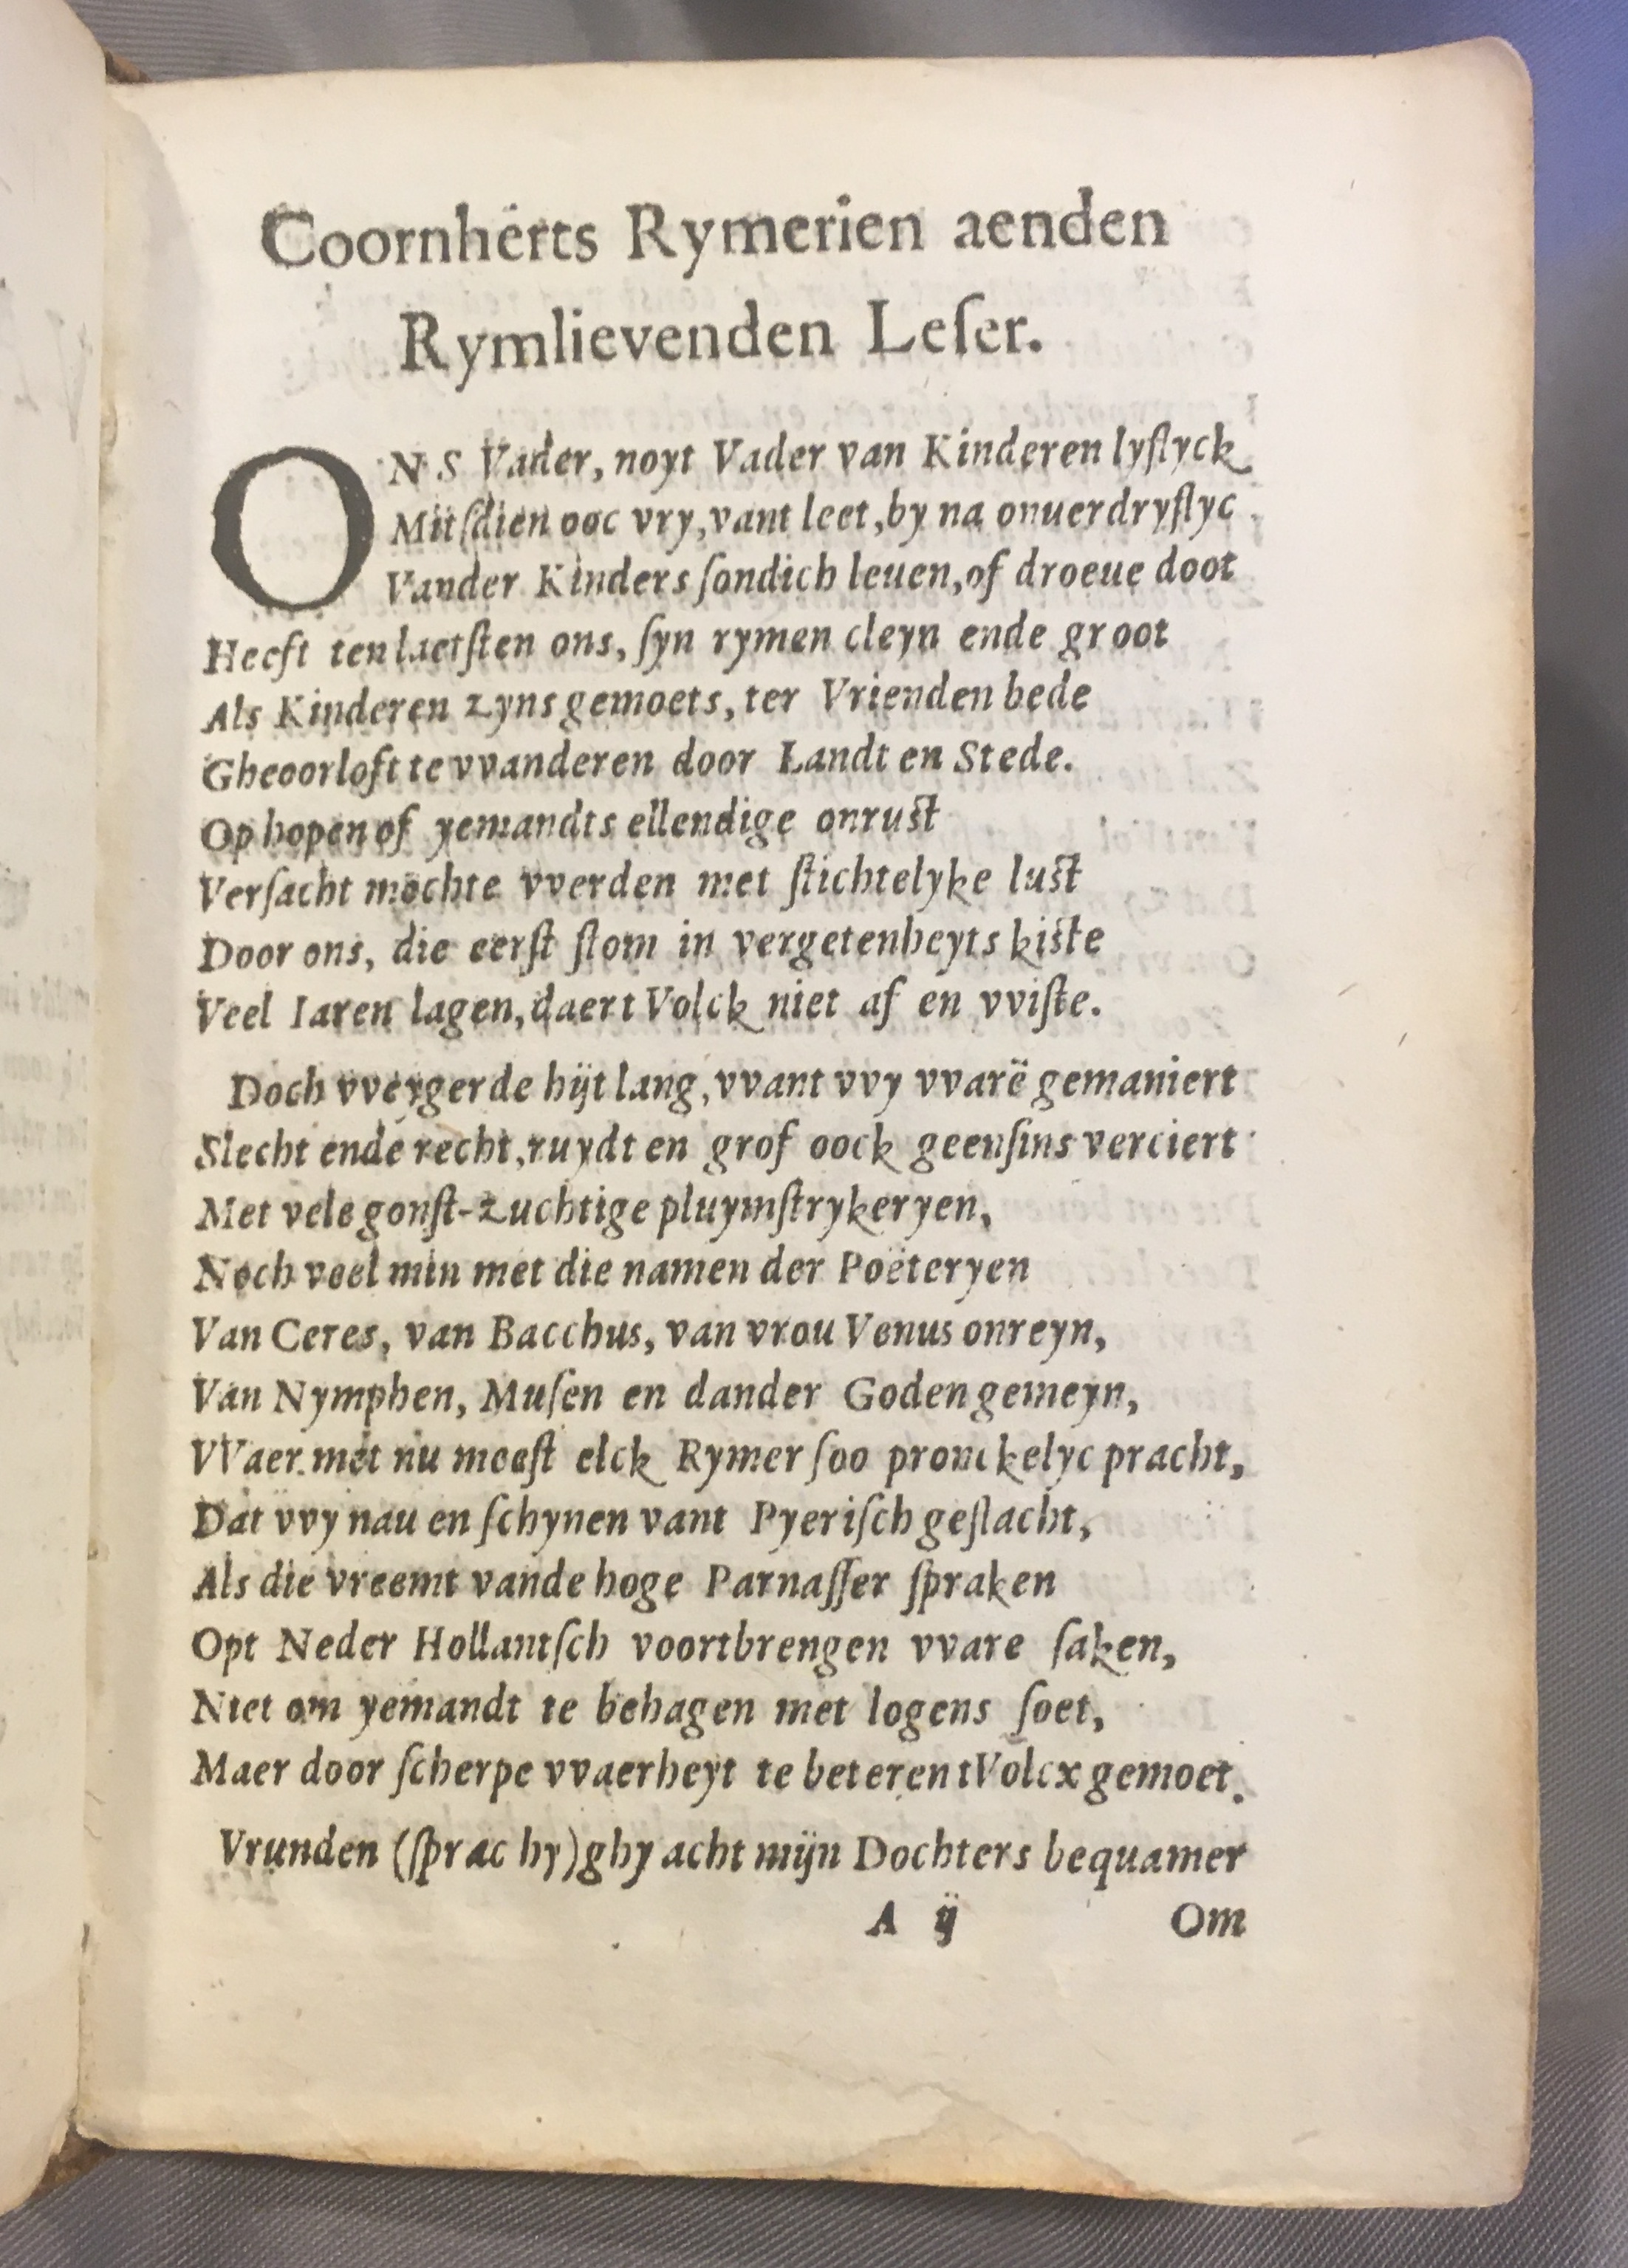 Coornherts Rymerien aenden
Rymlievenden Leſer.
ONS Vader, noyt Vader van Kinderen lyflyck
Mitſdien ooc vry, vant leet, by na onuerdryflyc
Vander Kinders ſondich leuen, of droeue doot
Heeft ten laetſten ons, ſyn rymen cleyn ende groot
Als Kinderen zyns gemoets, ter Vrienden bede
Gheoorloft te vvanderen door Landt en Stede.
Op hopen of yemandts ellendige onruſt
Verſacht mochte vverden met ſtichtelyke luſt
Door ons, die eerſt ſtom in vergetenheyts kiſte
Veel Iaren lagen, daert Volck niet af en vviſte.
Doch vveygerde hijt lang, vvant vvy vvarē gemaniert
Slecht ende recht, ruydt en grof oock geenſins verciert
Met vele gonſt-zuchtige pluymſtrykeryen,
Noch veel min met die namen der Poëteryen
Van Ceres, van Bacchus, van vrou Venus onreyn,
Van Nymphen, Muſen en dander Goden gemeyn,
VVaer met nu meeſt elck Rymer ſoo pronckelyc pracht,
Dat vvy nau en ſchynen vant Pyeriſch geſlacht,
Als die vreemt vande hoge Parnaſſer ſpraken
Opt Neder Hollantſch voortbrengen vvare ſaken,
Niet om yemandt te behagen met logens ſoet,
Maer door ſcherpe vvaerheyt te beteren tVolcx gemoet.
Vrunden (ſprac hy) ghy acht mijn Dochters bequamer
A ij Om